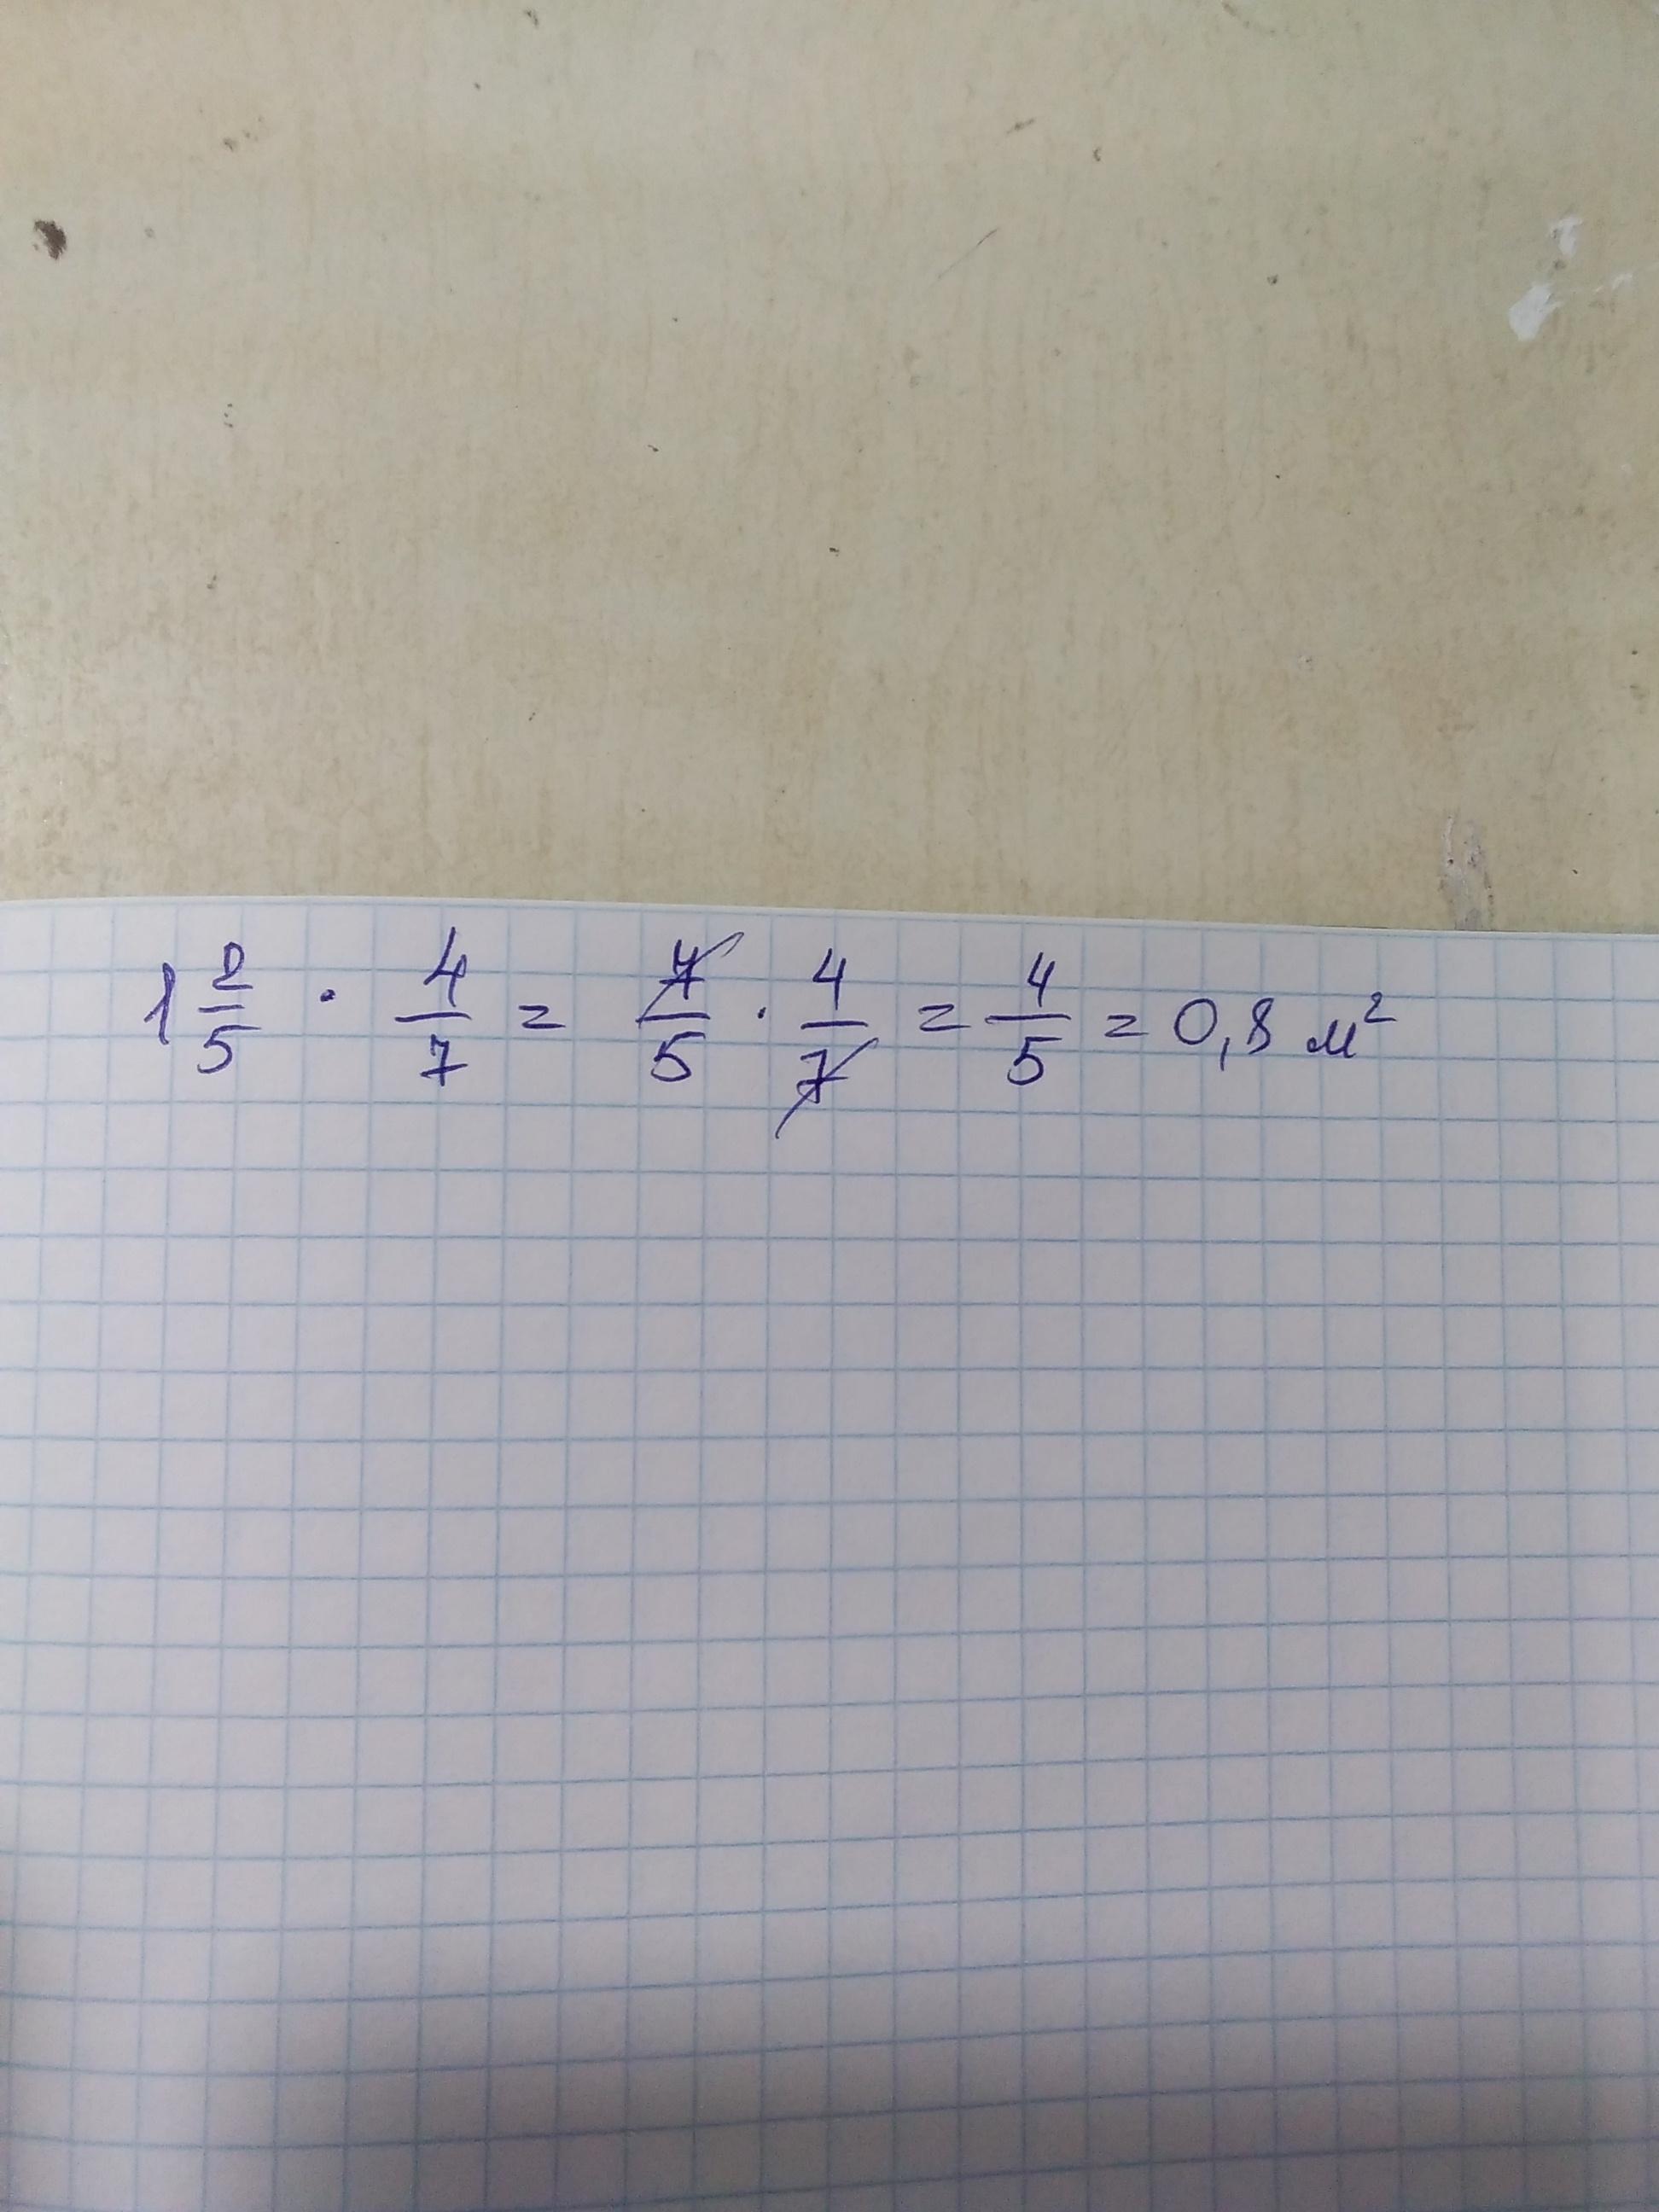 1 2/5 · 4/7 = 7/5 · 4/7 = 4/5 = 0,8 м²